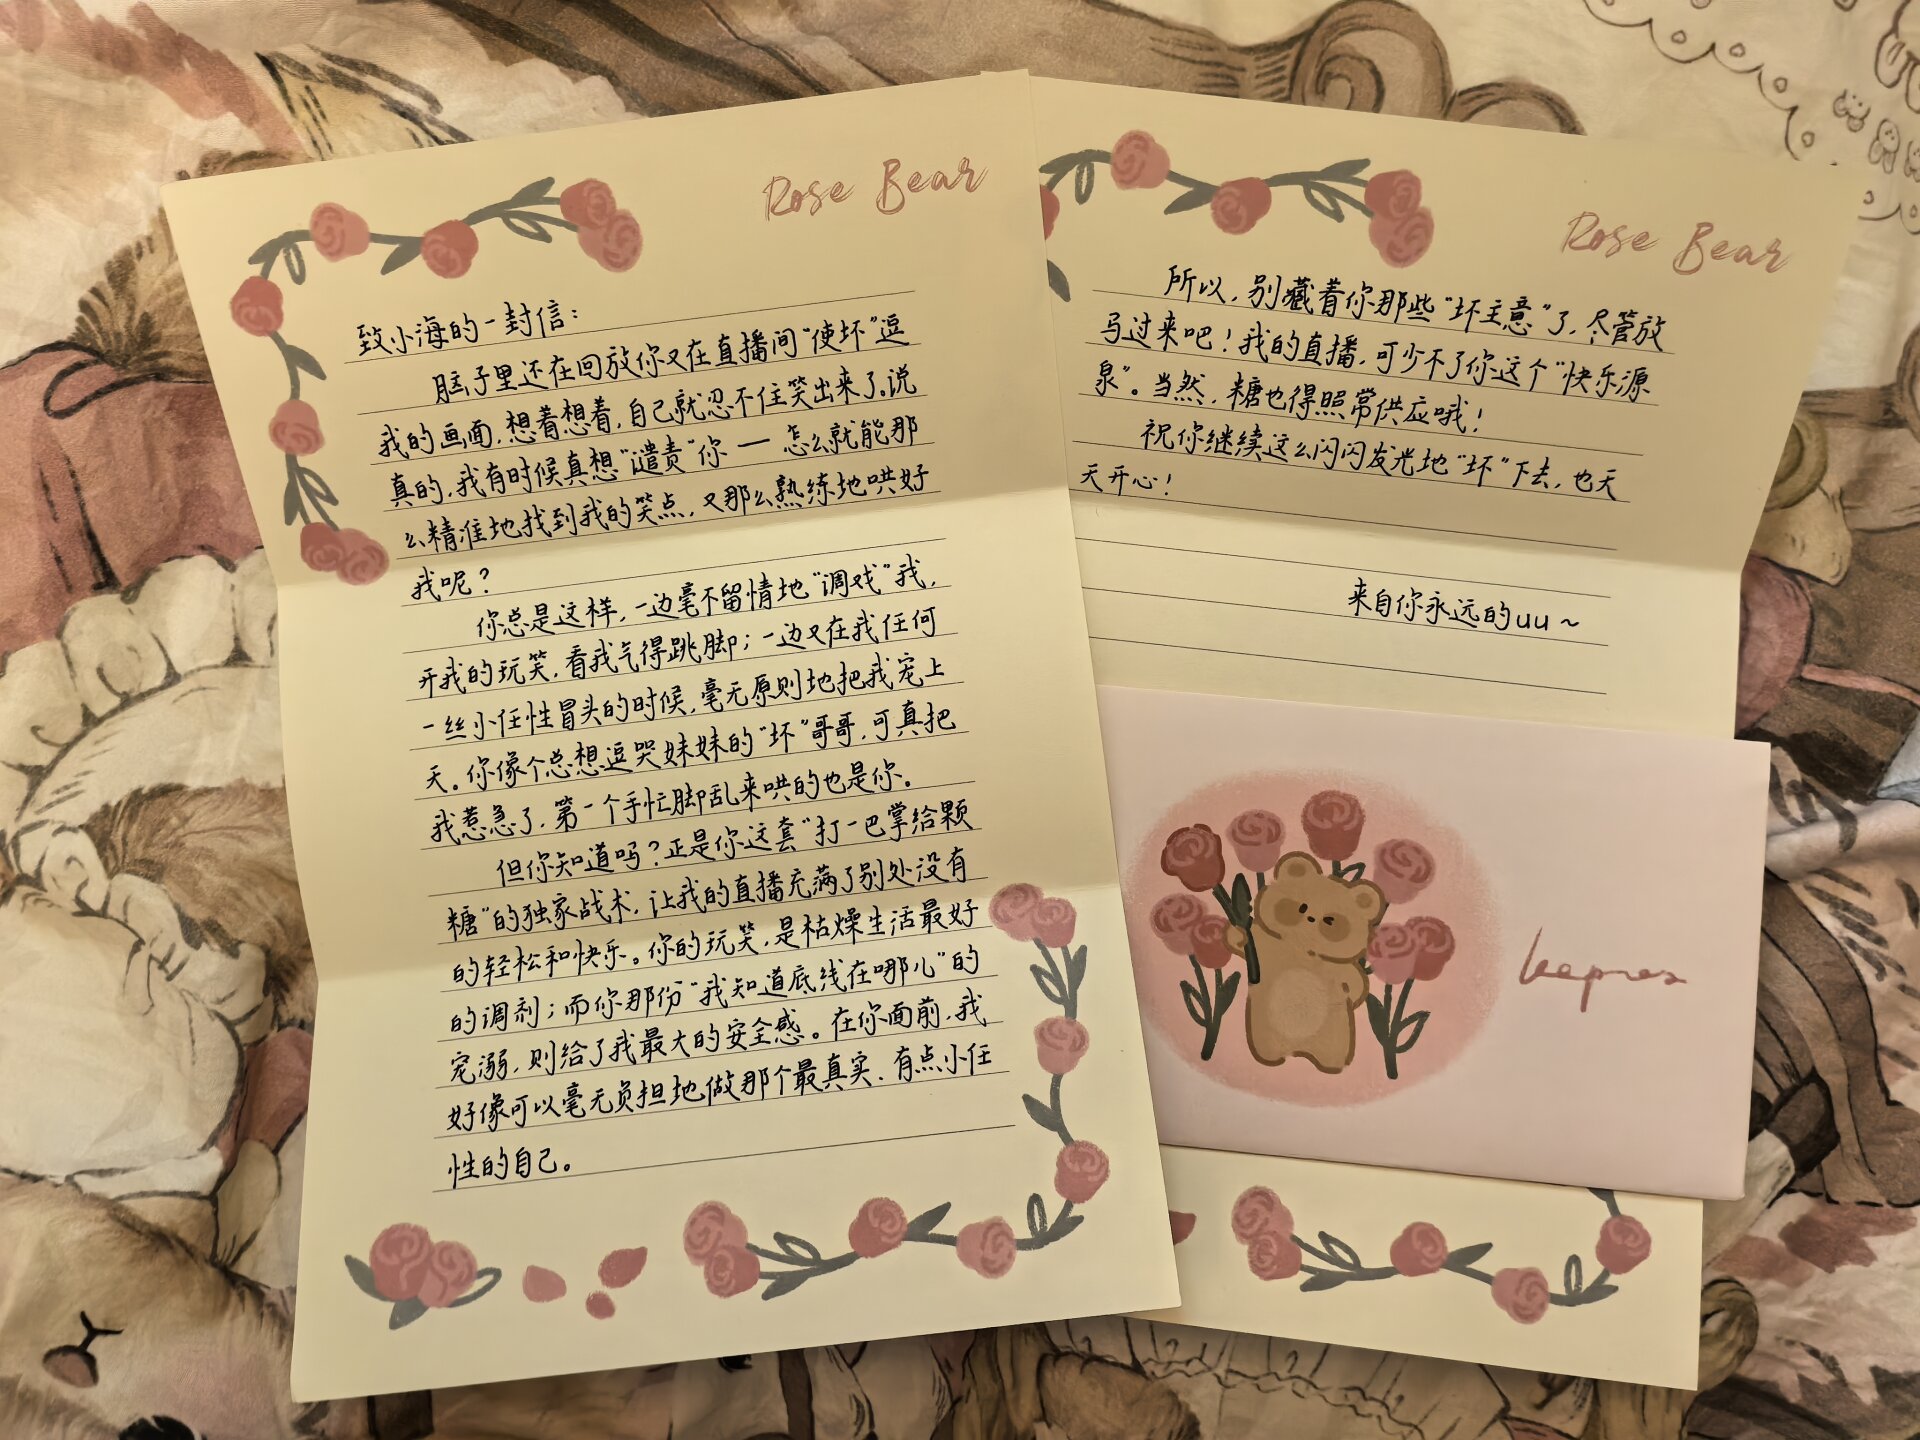 Rose Bear
致小海的一封信：
脑子里还在回放你又在直播间“使坏”逗
我的画面，想着想着，自己就忍不住笑出来了。说
真的，我有时候真想“谴责”你 — 怎么就能那
么精准地找到我的笑点，又那么熟练地哄好
我呢？
你总是这样，一边毫不留情地“调戏”我，
开我的玩笑，看我气得跳脚；一边又在我任何
一丝小任性冒头的时候，毫无原则地把我宠上
天。你像个总想逗哭妹妹的“坏”哥哥，可真把
我惹急了，第一个手忙脚乱来哄的也是你。
但你知道吗？正是你这套“打一巴掌给颗
糖”的独家战术，让我的直播充满了别处没有
的轻松和快乐。你的玩笑，是枯燥生活最好
的调剂；而你那份“我知道底线在哪儿”的
宠溺，则给了我最大的安全感。在你面前，我
好像可以毫无负担地做那个最真实、有点小任
性的自己。
Rose Bear
所以，别藏着你那些“坏主意”了，尽管放
马过来吧！我的直播，可少不了你这个“快乐源
泉”。当然，糖也得照常供应哦！
祝你继续这么闪闪发光地“坏”下去，也天
天开心！
来自你永远的uu~